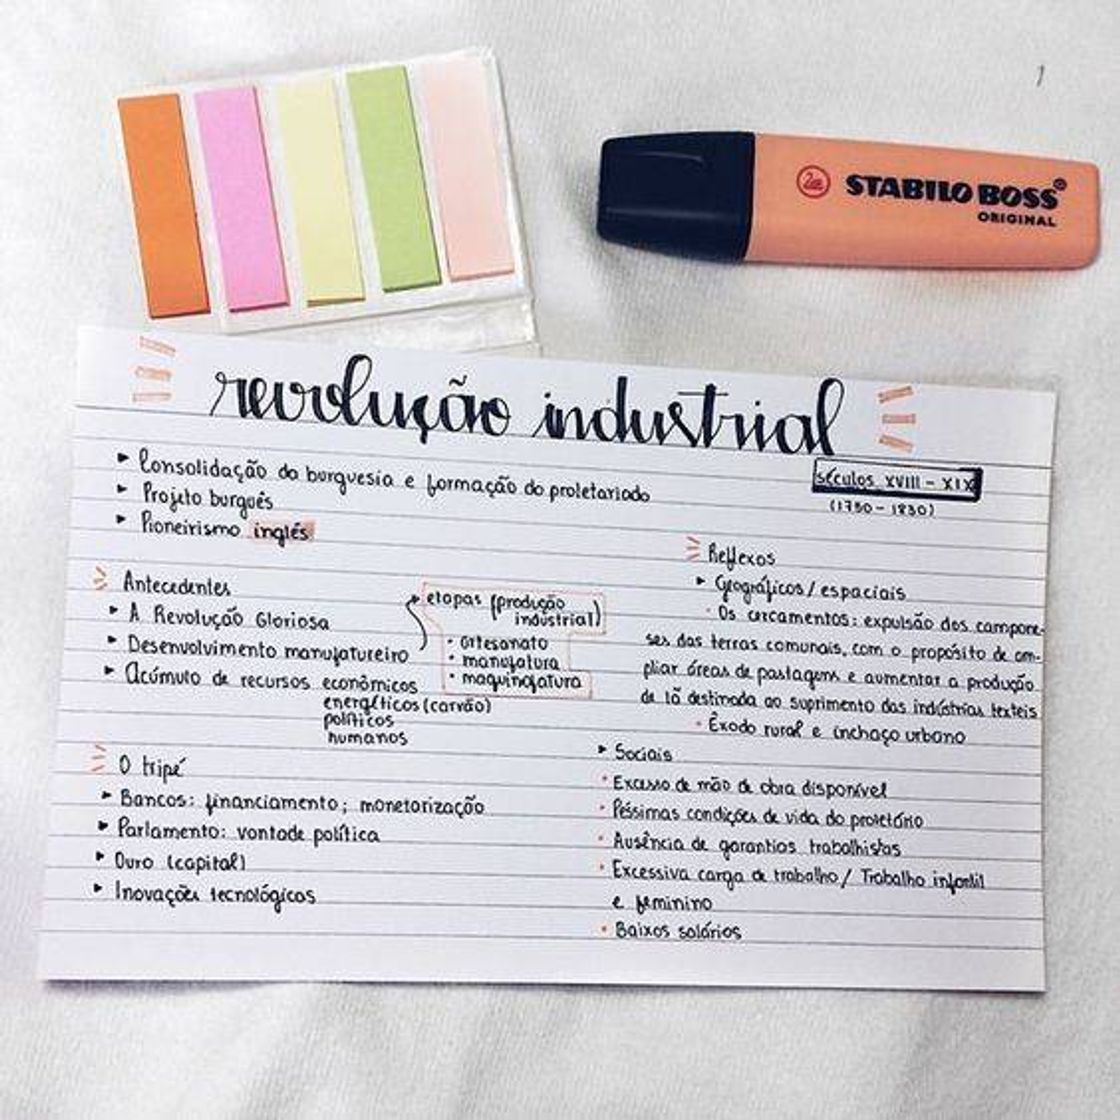 STABILO BOSS
ORIGINAL
revolução industrial
séculos XVIII - XIX
(1750 - 1830)
Consolidação da burguesia e formação do proletariado
Projeto burguês
Pioneirismo inglês
Antecedentes
A Revolução Gloriosa
Desenvolvimento manufatureiro
Acúmulo de recursos econômicos
energéticos (carvão)
políticos
humanos
etapas (produção
industrial)
artesanato
manufatura
maquinofatura
O tripé
Bancos: financiamento; monetorização
Parlamento: vontade política
Ouro (capital)
Inovações tecnológicas
Reflexos
Geográficos / espaciais
Os cercamentos: expulsão dos campone-
ses das terras comunais, com o propósito de am-
pliar áreas de pastagens e aumentar a produção
de lã destinada ao suprimento das indústrias texteis
Êxodo rural e inchaço urbano
Sociais
Excesso de mão de obra disponível
Péssimas condições de vida do proletário
Ausência de garantias trabalhistas
Excessiva carga de trabalho / Trabalho infantil
e feminino
Baixos salários